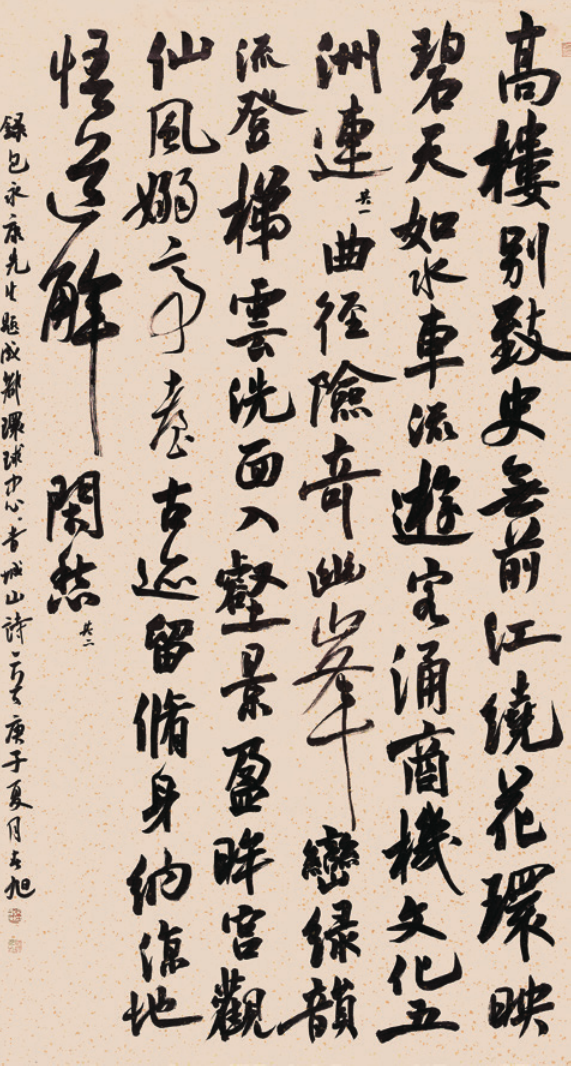 高樓別致史無前江繞花環映
碧天如水車流遊客涌商機文化五
洲連 其一 曲徑險奇幽峰巒綠韻
流登梯雲洗面入壑景盈眸宮觀
仙風嫋亭臺古迹留脩身納涼地
悟道解閑愁 其二
錄包永康先生題成都環球中心青城山詩二首庚子夏月志旭